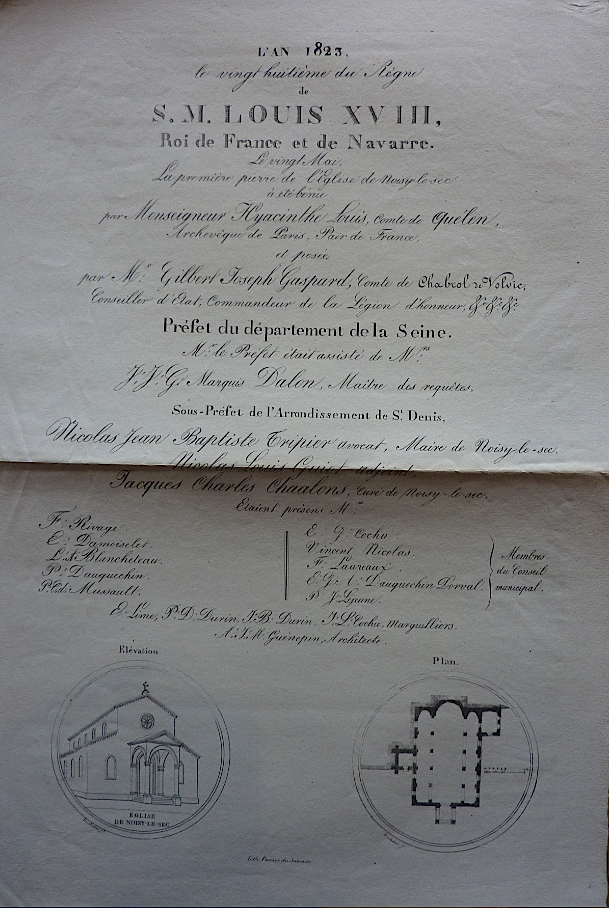 L'AN 1823,
le vingt huitième du Règne
de
S. M. LOUIS XVIII,
Roi de France et de Navarre.
Le vingt Mai,
La première pierre de l'Église de Noisy-le-sec
a été bénie
par Monseigneur Hyacinthe Louis, Comte de Quélen,
Archevêque de Paris, Pair de France,
et posée
par Mr. Gilbert Joseph Gaspard, Comte de Chabrol de Volvic,
Conseiller d'Etat, Commandeur de la Légion d'honneur, &c. &c. &c.
Préfet du département de la Seine.
Mr. le Préfet était assisté de Mrs.
J. J. G. Marquis Dalon, Maître des requêtes,
Sous-Préfet de l'Arrondissement de St. Denis,
Nicolas Jean Baptiste Tripier avocat, Maire de Noisy-le-sec,
Nicolas Louis adjoint,
Jacques Charles Chaalons, Curé de Noisy-le-sec.
Etaient présens Mrs.
F. Rivage
C. Damoiselet.
L. N. Blancheteau.
P. Dauquechin.
P. Ed. Mussault.
E. G. Cochu
Vincent Nicolas.
F. Lauriaux
E. G. A. Dauquechin Dorval.
P. J. Lejeune.
Membres
du Conseil
municipal.
E. Lime, P. D. Durin, J. B. Durin, J. L. Cochu, Marguilliers.
A. J. M. Guénepin, Architecte.
Elévation.
Plan.
EGLISE
DE NOISY-LE-SEC